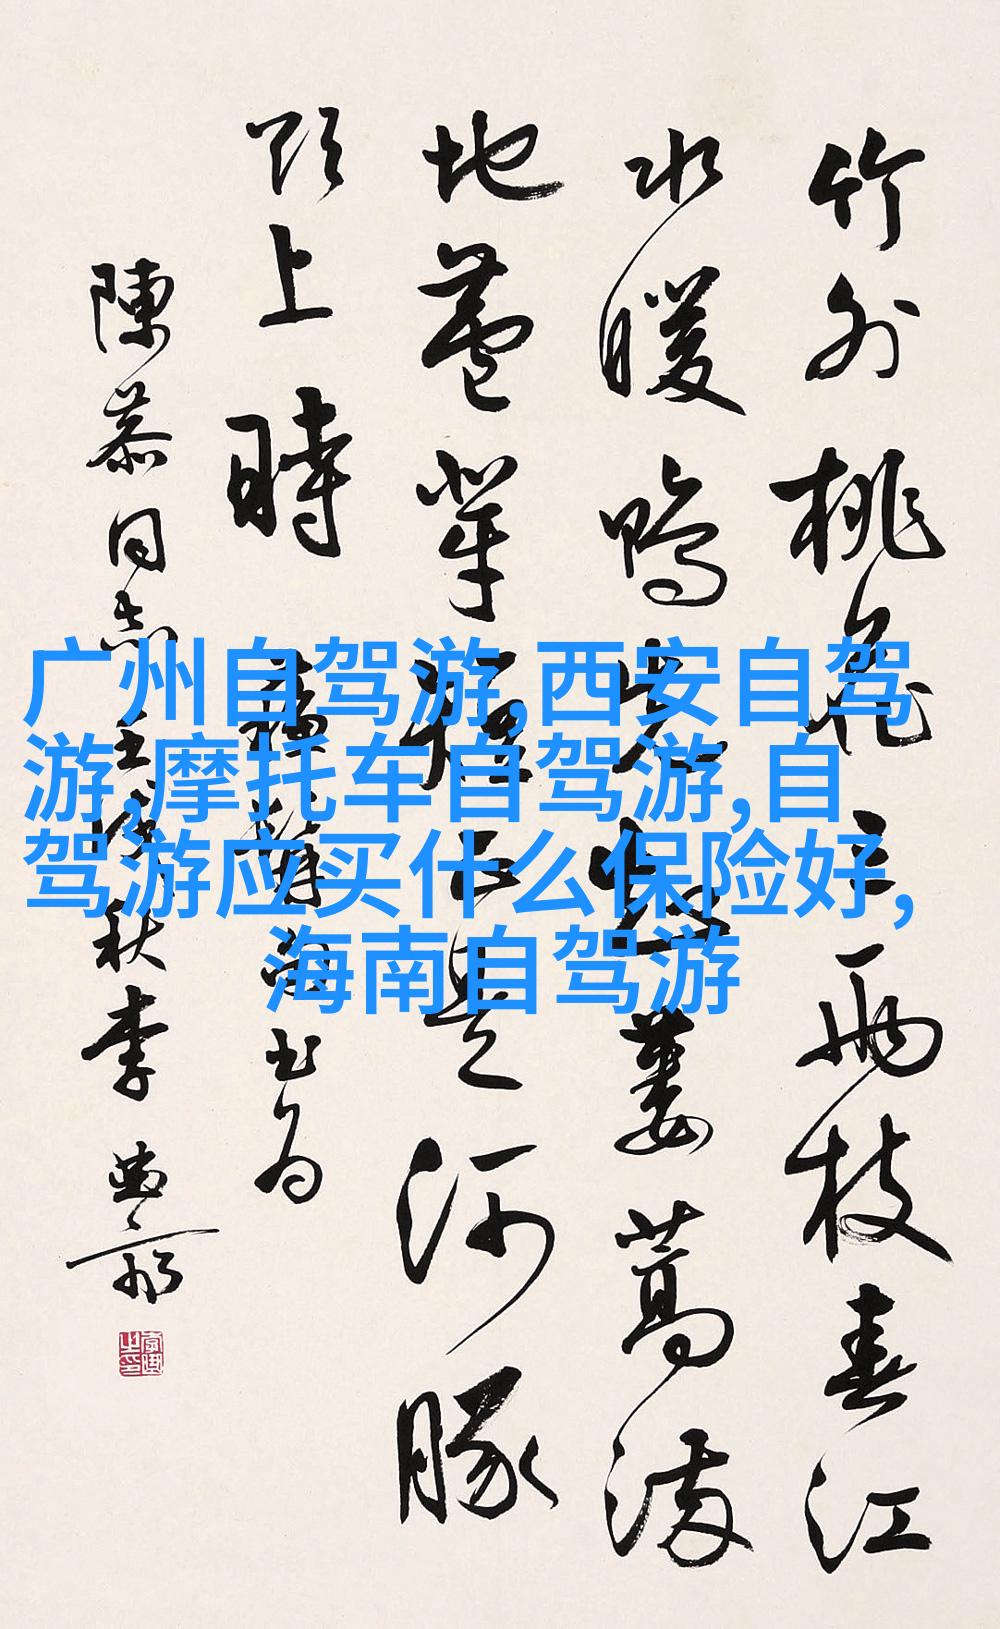 竹外桃花三兩枝春江
水暖鴨先知蔞蒿滿
地蘆芽短正是河豚
欲上時 蘇
陳慕同志 秋李
广州自驾游,西安自驾
游,摩托车自驾游,自
驾游应买什么保险好,
海南自驾游